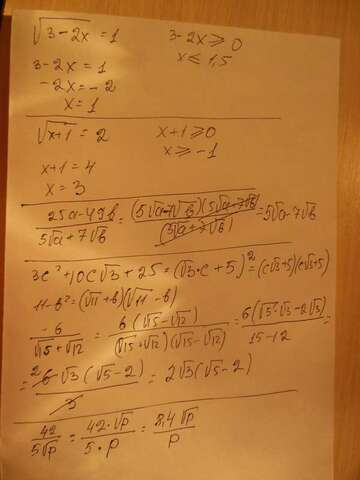 √3-2x = 1    3-2x ≥ 0
3-2x = 1    x ≤ 1,5
-2x = -2
x = 1
√x+1 = 2    x+1 ≥ 0
x+1 = 4    x ≥ -1
x = 3
25a-49b/5√a+7√b = (5√a-7√b)(5√a+7√b)/(5√a+7√b) = 5√a-7√b
3c²+10c√3+25 = (√3·c+5)² = (c√3+5)(c√3+5)
11-b² = (√11+b)(√11-b)
6/√15+√12 = 6(√15-√12)/(√15+√12)(√15-√12) = 6(√5·√3-2√3)/15-12 =
= ²6√3(√5-2)/3 = 2√3(√5-2)
42/5√p = 42·√p/5·p = 8,4√p/p